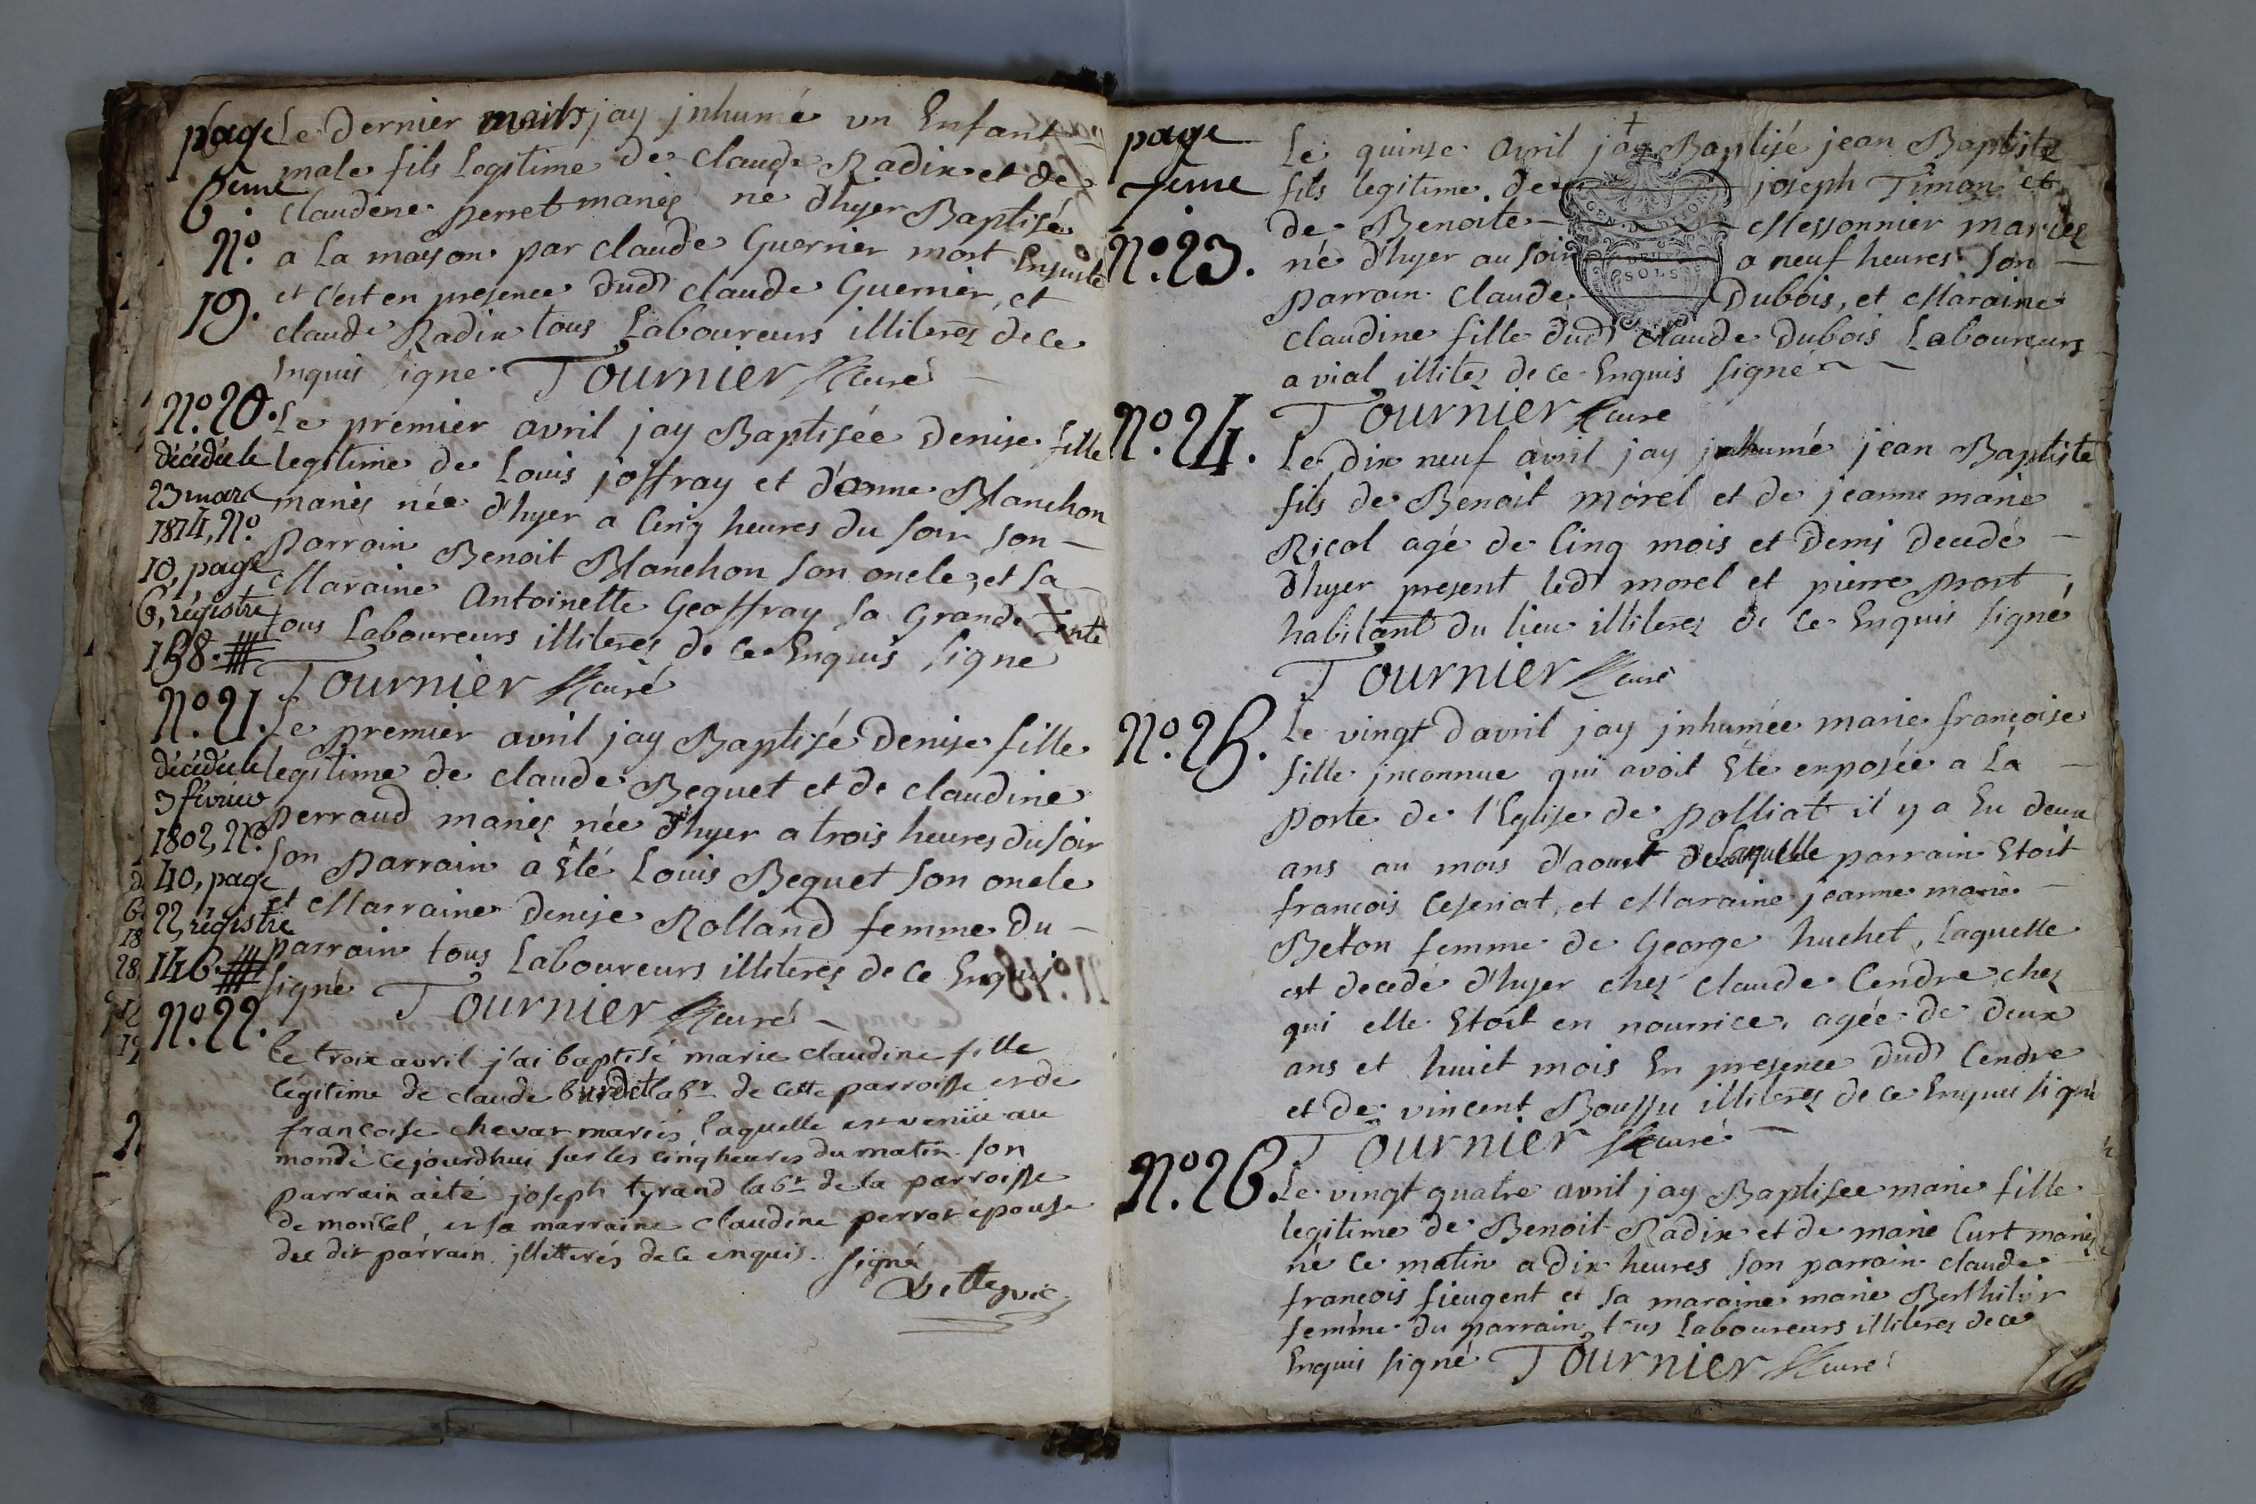 page
6eme
No.
19.
Le Dernier mars jay jnhumé un Enfant
male fils Legitime de Claude Radix et de
Claudene perret mariés né d'hyer Baptisé
a la maison par Claude Guerrier mort Ensuite
et c'est en presence dud Claude Guerrier, et
Claude Radix tous Laboureurs illiterés de ce
Enquis signé Tournier curé
No. 20.
décédée le
23 mars
1814, No.
10, page
6, régistre
158.
Le premier avril jay Baptisée Denise fille
legitime de Louis joffray et d'anne Blanchon
mariés née d'hyer a Cinq heures du soir son
parrain Benoit Blanchon son oncle, et sa
Maraine Antoinette Geoffray sa Grande tente
tous Laboureurs illiterés de ce Enquis signe
Tournier curé
No. 21.
décédée le
3 février
1802, No.
40, page
22, régistre
146.
Le premier avril jay Baptisé Denise fille
legitime de Claude Bequet et de Claudine
perraud mariés née d'hyer a trois heures du soir
son parrain à Eté Louis Bequet son oncle
et Marraine Denise Rolland femme du
parrain tous Laboureurs illiterés de ce Enquis
signé Tournier curé
No. 22.
Le trois avril j'ai baptisé marie claudine fille
légitime de claude burdet labr de cette parroisse et de
françoise chevat mariés, laquelle est venüe au
monde cejourdhui sur les cinq heures du matin son
parrain a été joseph tyrand labr de la parroisse
de montcel, et sa marraine claudine perrot épouse
du dit parrain. jllitterés de ce enquis. signé
page
7eme
No. 23.
Le quinse avril jay Baptisé jean Baptiste
fils legitime de joseph Timon et
de Benoite Messonnier mariés
né d'hyer au soir a neuf heures son
parrain Claude Dubois, et Maraine
Claudine fille dud Claude Dubois Laboureurs
a vial illites de ce Enquis signé
Tournier curé
GEN. DE LION
DEUX
SOLS
No. 24.
Le Dix neuf avril jay jnhumé jean Baptiste
fils de Benoit morel et de jeanne marie
Ricol agé de Cinq mois et Demj Decedé
d'hyer present led morel et pierre prost
habitant du lieu illiteres de ce Enquis signé
Tournier curé
No. 25.
Le vingt d'avril jay jnhumée marie françoise
fille jnconnue qui avoit Eté exposée a La
porte de l'Eglise de polliat il y a Eu deux
ans au mois d'aoust de Laquelle parrain Etoit
francois Ceseriat, et Maraine jeanne marie
Beton femme de George huchet, Laquelle
est decedé d'hyer chez Claude Cendre chez
qui elle Etoit en nourrice, agée de deux
ans et huict mois En presence dud Cendre
et de vincent Boussu illiterés de ce Enquis signé
Tournier curé
No. 26.
Le vingt quatre avril jay Baptisee marie fille
legitime de Benoit Radix et de marie Curt mariés
né ce matin a Dix heures son parrain Claude
françois fieugent et sa maraine marie Berthilier
femme du parrain tous Laboureurs illiterés de ce
Enquis signé Tournier curé